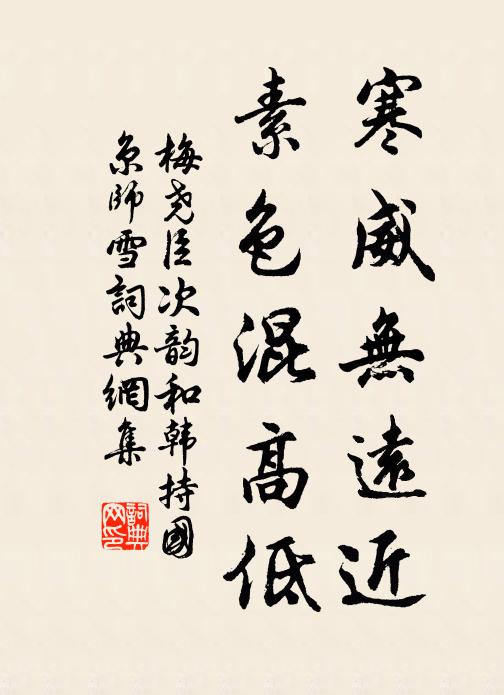 寒威無遠近
素色混高低
梅尧臣次韵和韩持國
京師雪詞典網集
詞典
网印